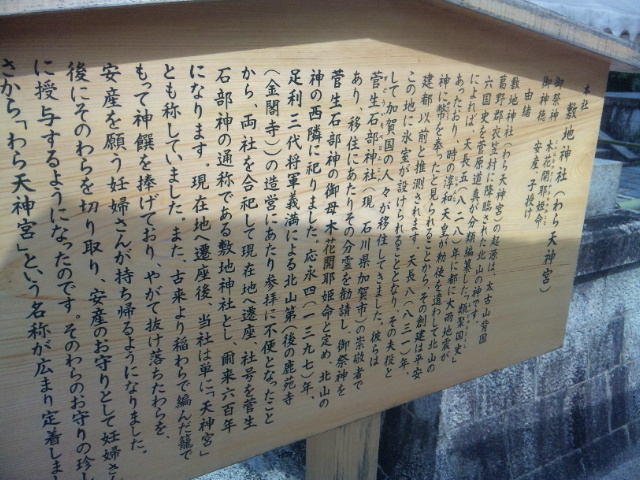 本社
敷地神社(わら天神宮)
御祭神 木花開耶姫命
御神徳 安産、子授け
由緒
敷地神社(わら天神宮)の起源は、太古山背国
葛野郡衣笠村に降臨された北山の神です。
六国史を菅原道真が分類編纂した『類聚国史』
によれば、天長五(八二八)年に都に大雨、地震が
あったおり、時の淳和天皇が勅使を遣わし北山の
神に幣を奉ったと見られることから、その創建は平安
建都以前と推測されます。天長八(八三一)年、
この地に氷室が設けられることとなり、その夫役と
して加賀国の人々が移住してきました。彼らは
菅生石部神社(現 石川県加賀市)の崇敬者で
あり、移住にあたりその分霊を勧請し、御祭神を
菅生石部神の御母木花開耶姫命と定め、北山の
神の西隣に祀りました。応永四(一三九七)年、
足利三代将軍義満による北山第(後の鹿苑寺
(金閣寺))の造営にあたり参拝に不便となったこと
から、両社を合祀して現在地へ遷座、社号を菅生
石部神の通称である敷地神社とし、爾来六百年
になります。現在地へ遷座後、当社は単に「天神宮」
とも称していました。また、古来より稲わらで編んだ籠で
もって神饌を捧げており、やがて抜け落ちたわらを、
安産を願う妊婦さんが持ち帰るようになりました。
後にそのわらを切り取り、安産のお守りとして妊婦さん
に授与するようになったのです。そのわらのお守りの珍し
さから「わら天神宮」という名称が広まり定着しまし